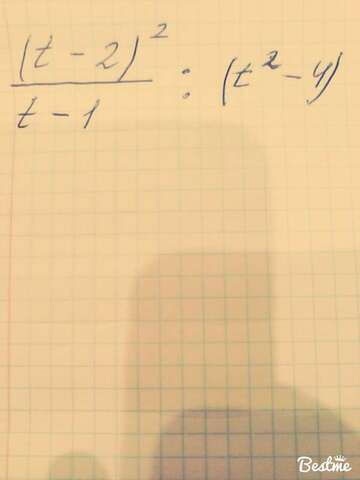 (t - 2)²
t - 1 : (t² - 4)
Bestme